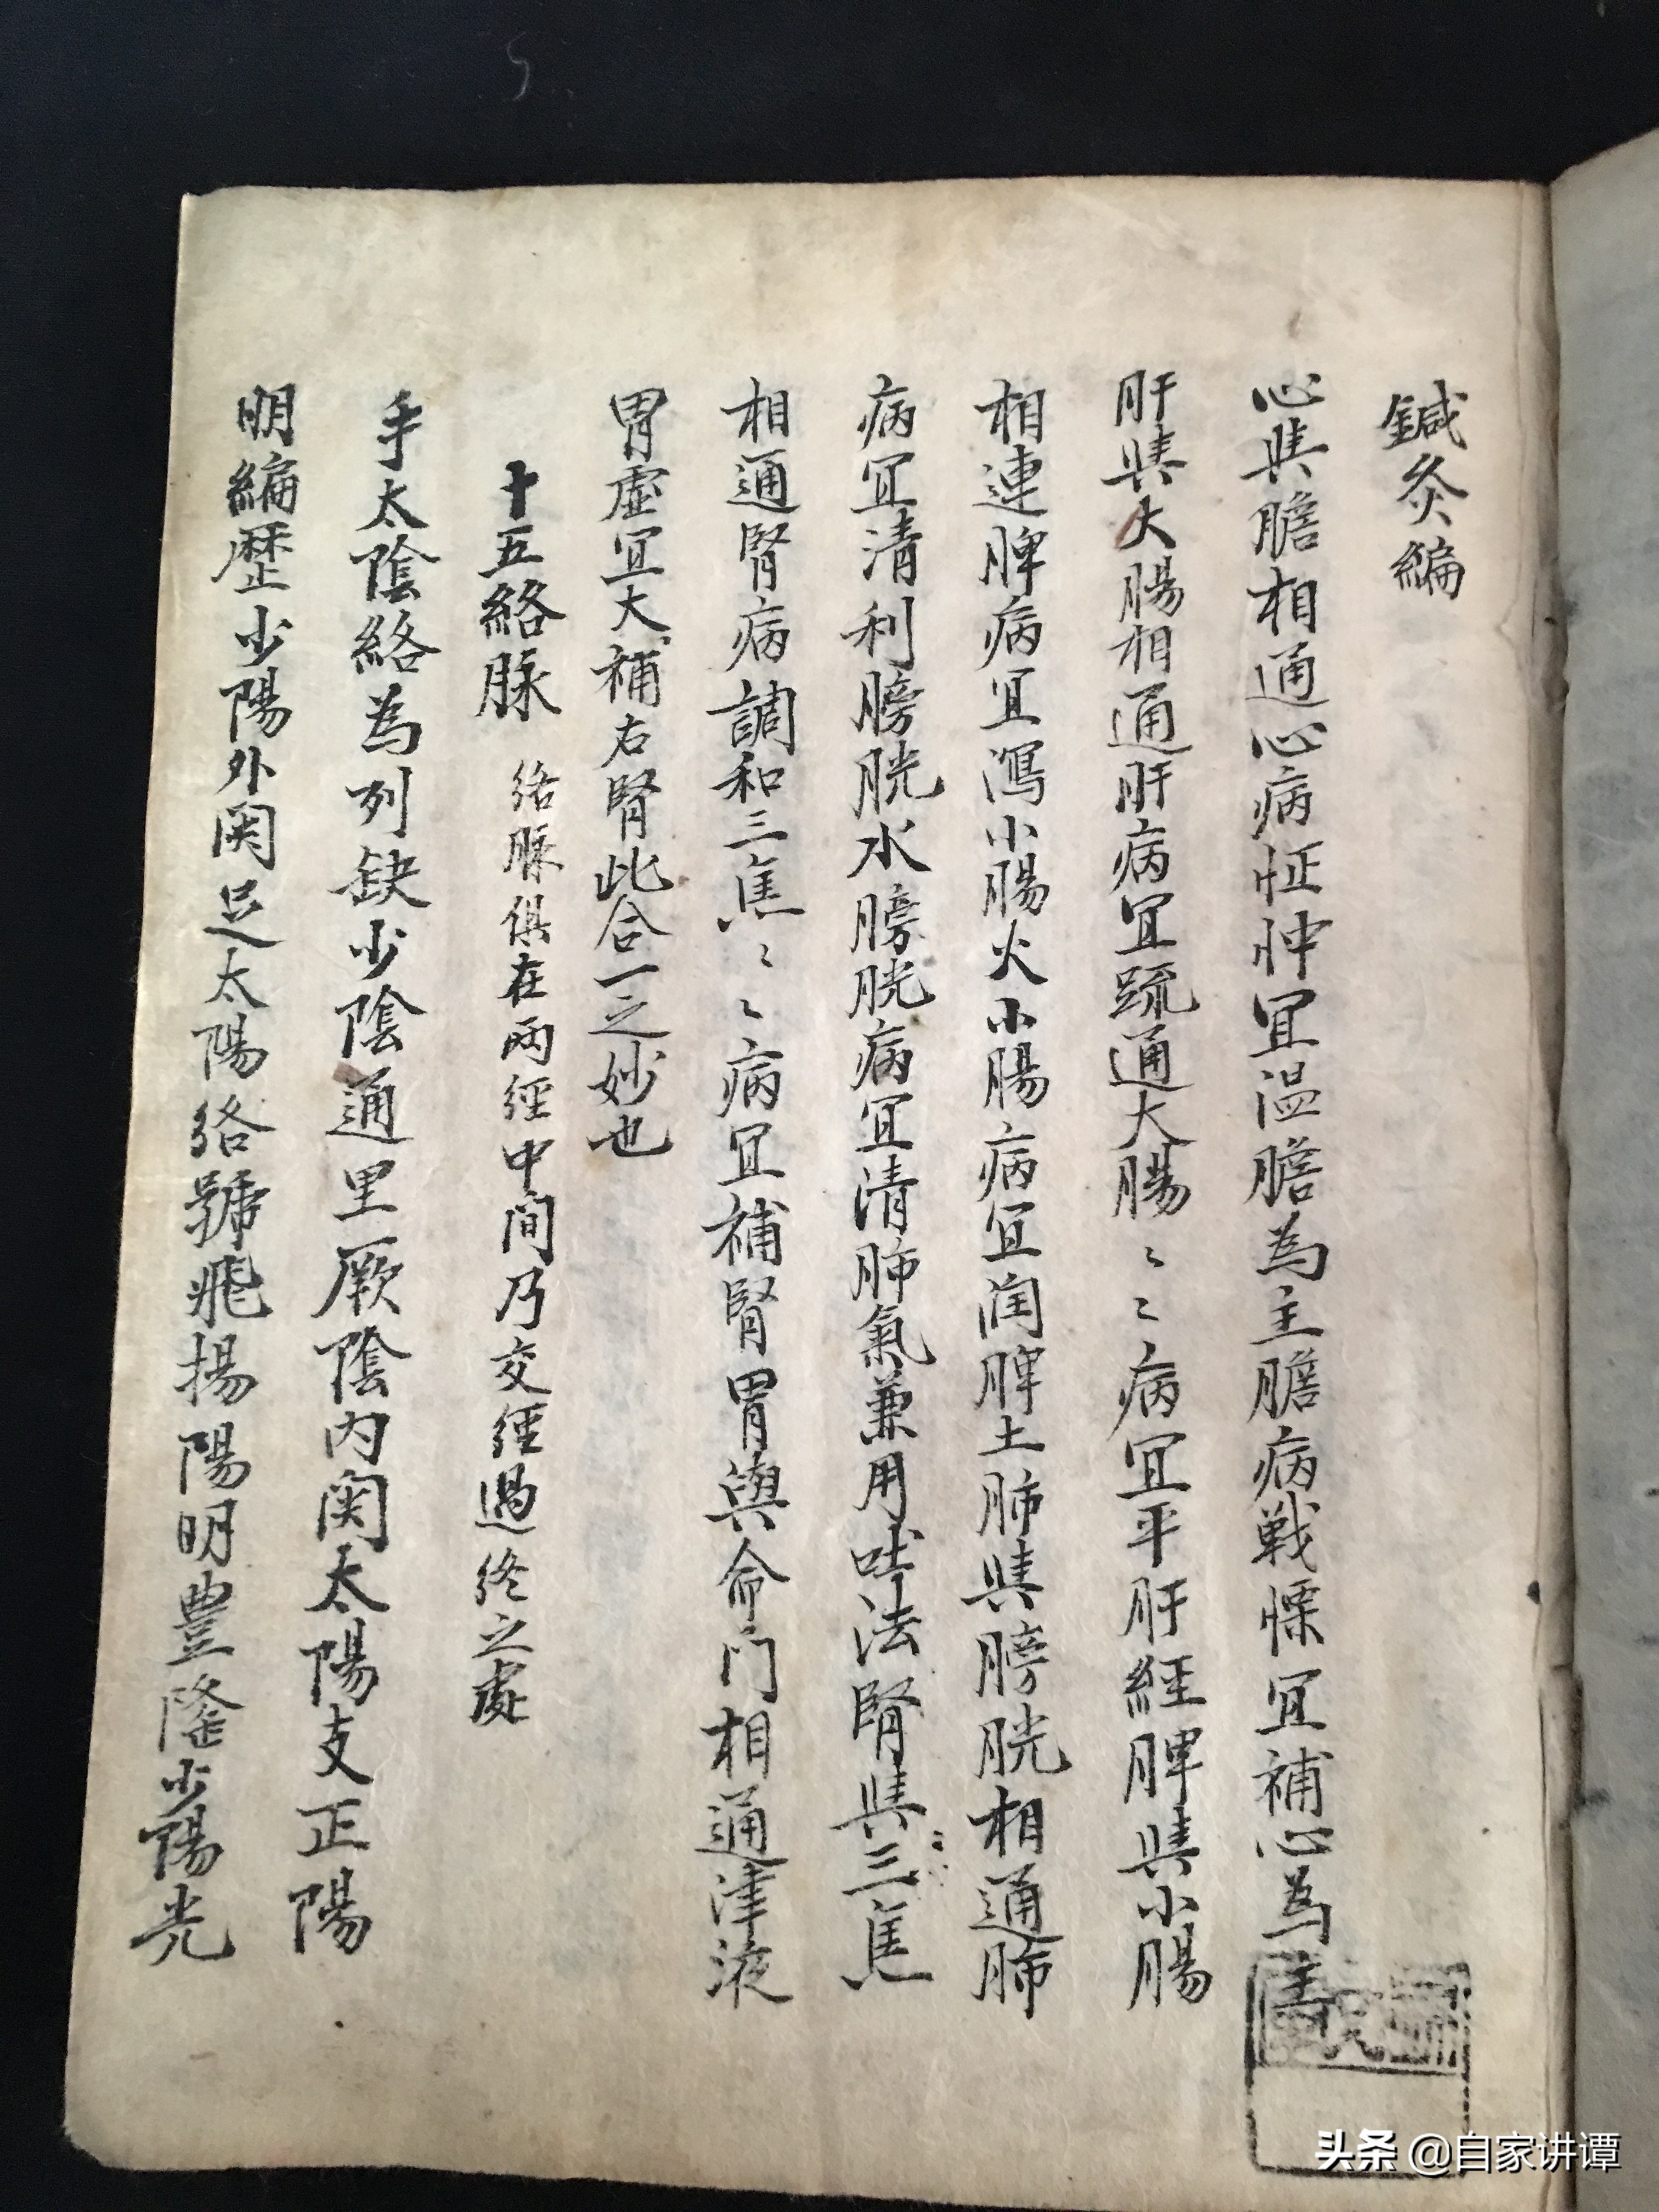 鍼灸編
心與膽相通心病怔忡宜温膽為主膽病戰慄宜補心為主
肝與大腸相通肝病宜疏通大腸〻〻病宜平肝經脾與小腸
相連脾病宜瀉小腸火小腸病宜润脾土肺與膀胱相通肺
病宜清利膀胱水膀胱病宜清肺氣兼用吐法腎與三焦
相通腎病調和三焦〻〻病宜補腎胃與命门相通津液
胃虛宜大補右腎此合一之妙也
十五絡脉 络脈俱在兩經中间乃交經過終之處
手太陰絡為列缺少陰通里厥陰内関太陽支正陽
明編歷少陽外関足太陽络號飛揚陽明豊隆少陽光
头条 @自家讲谭